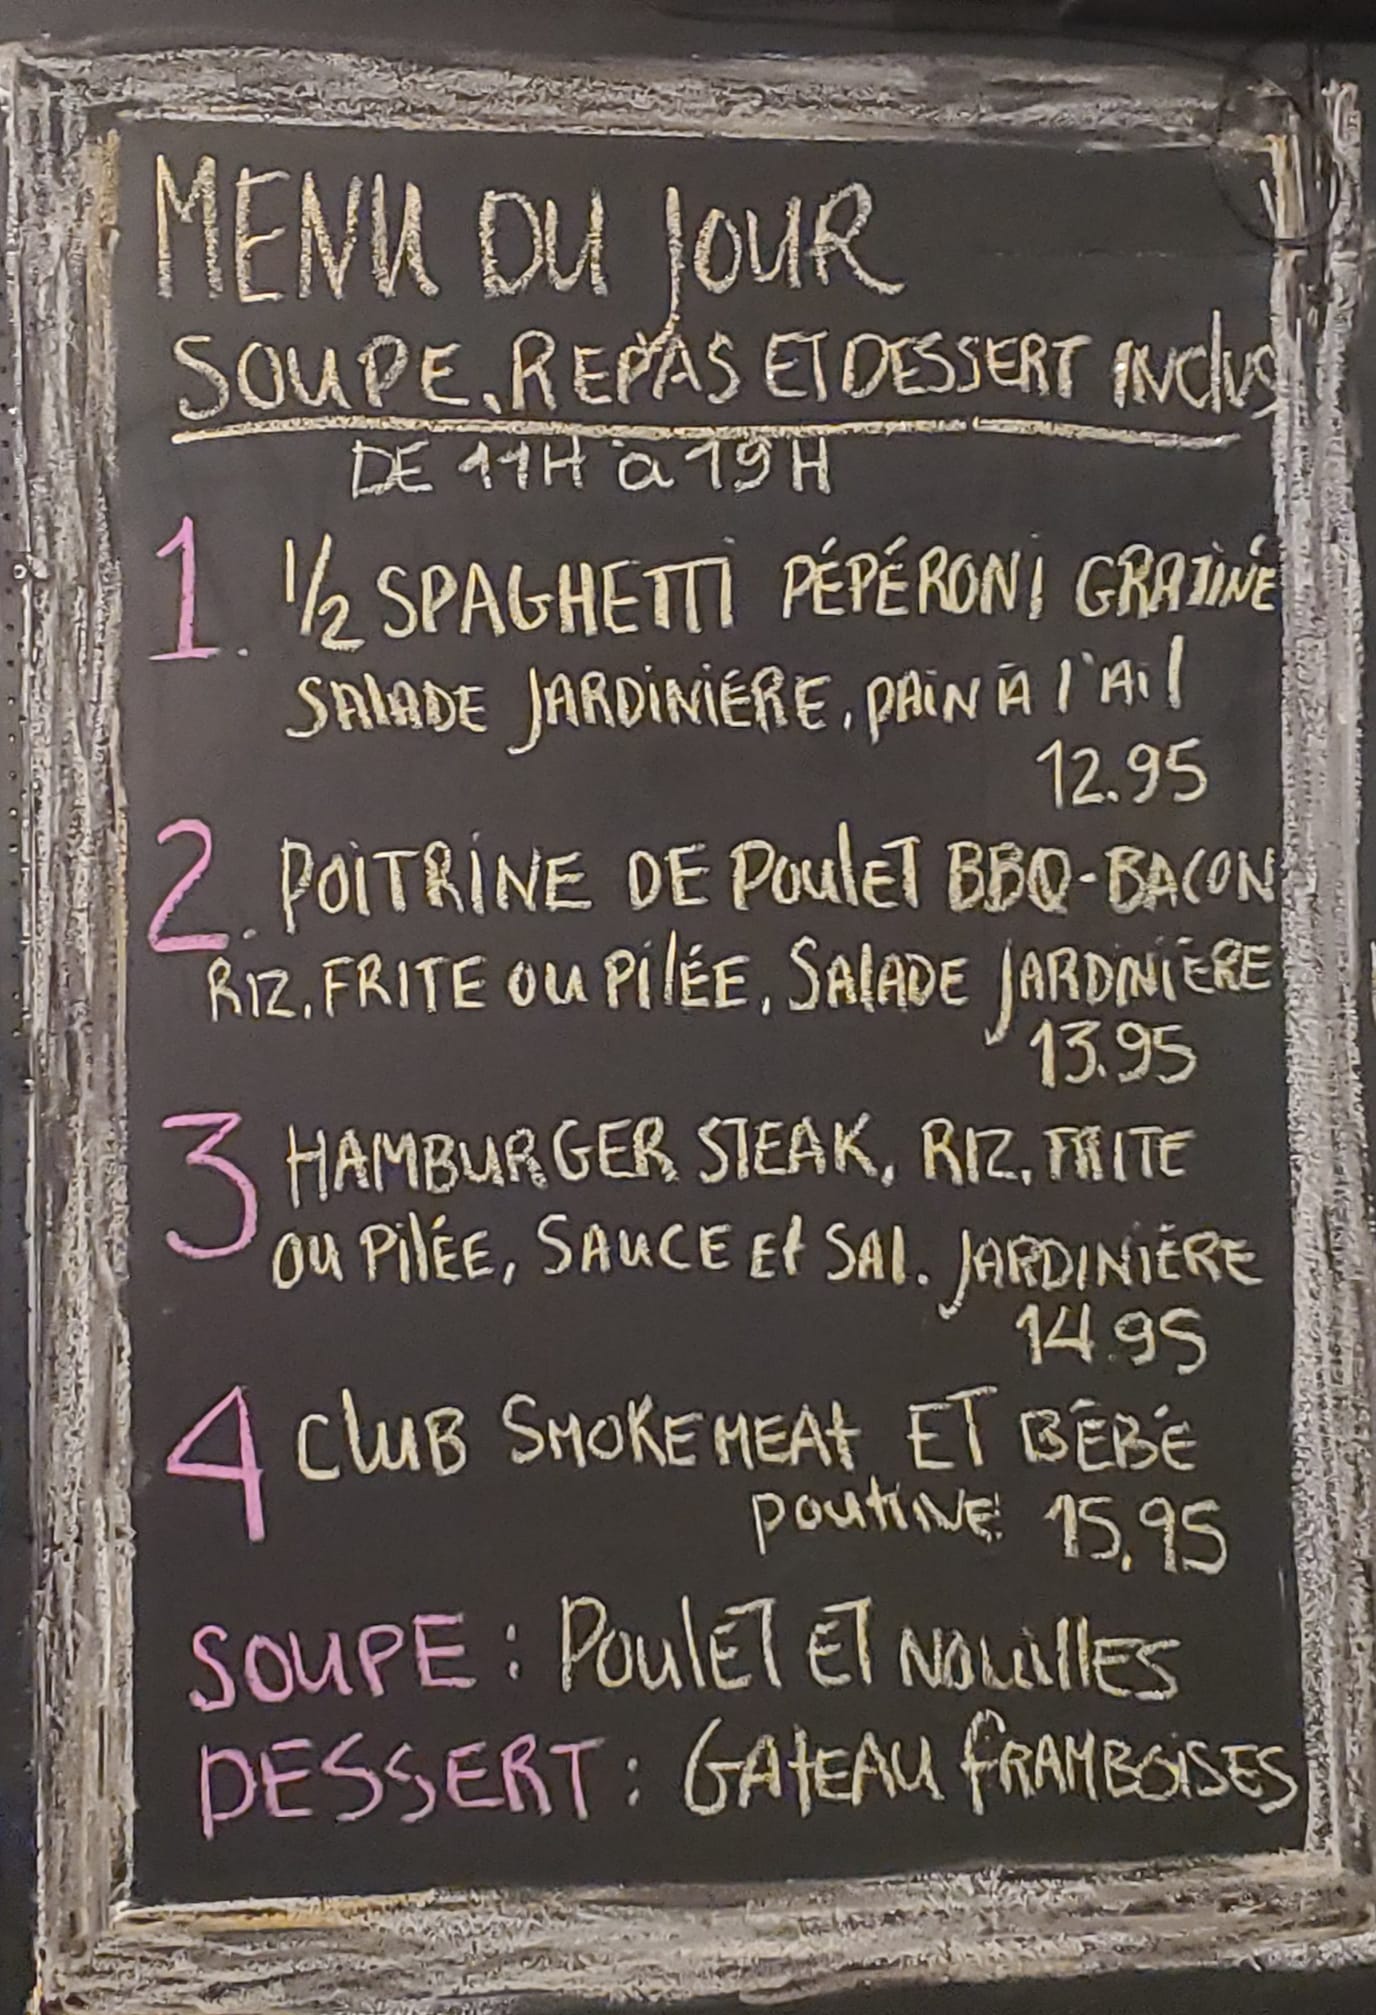 MENU DU JOUR
SOUPE, REPAS ET DESSERT INCLUS
DE 11H à 19H
1. 1/2 SPAGHETTI PÉPÉRONI GRATINÉ
SALADE JARDINIÉRE, PAIN À l'Ail
12.95
2. POITRINE DE POULET BBQ-BACON
RIZ, FRITE OU PILÉE, SALADE JARDINIÉRE
13.95
3 HAMBURGER STEAK, RIZ, FRITE
OU PILÉE, SAUCE Et SAL. JARDINIÉRE
14.95
4 CLUB SMOKE MEAT ET BÉBÉ
POUTINE 15.95
SOUPE : POULET ET NOUILLES
DESSERT : GATEAU FRAMBOISES